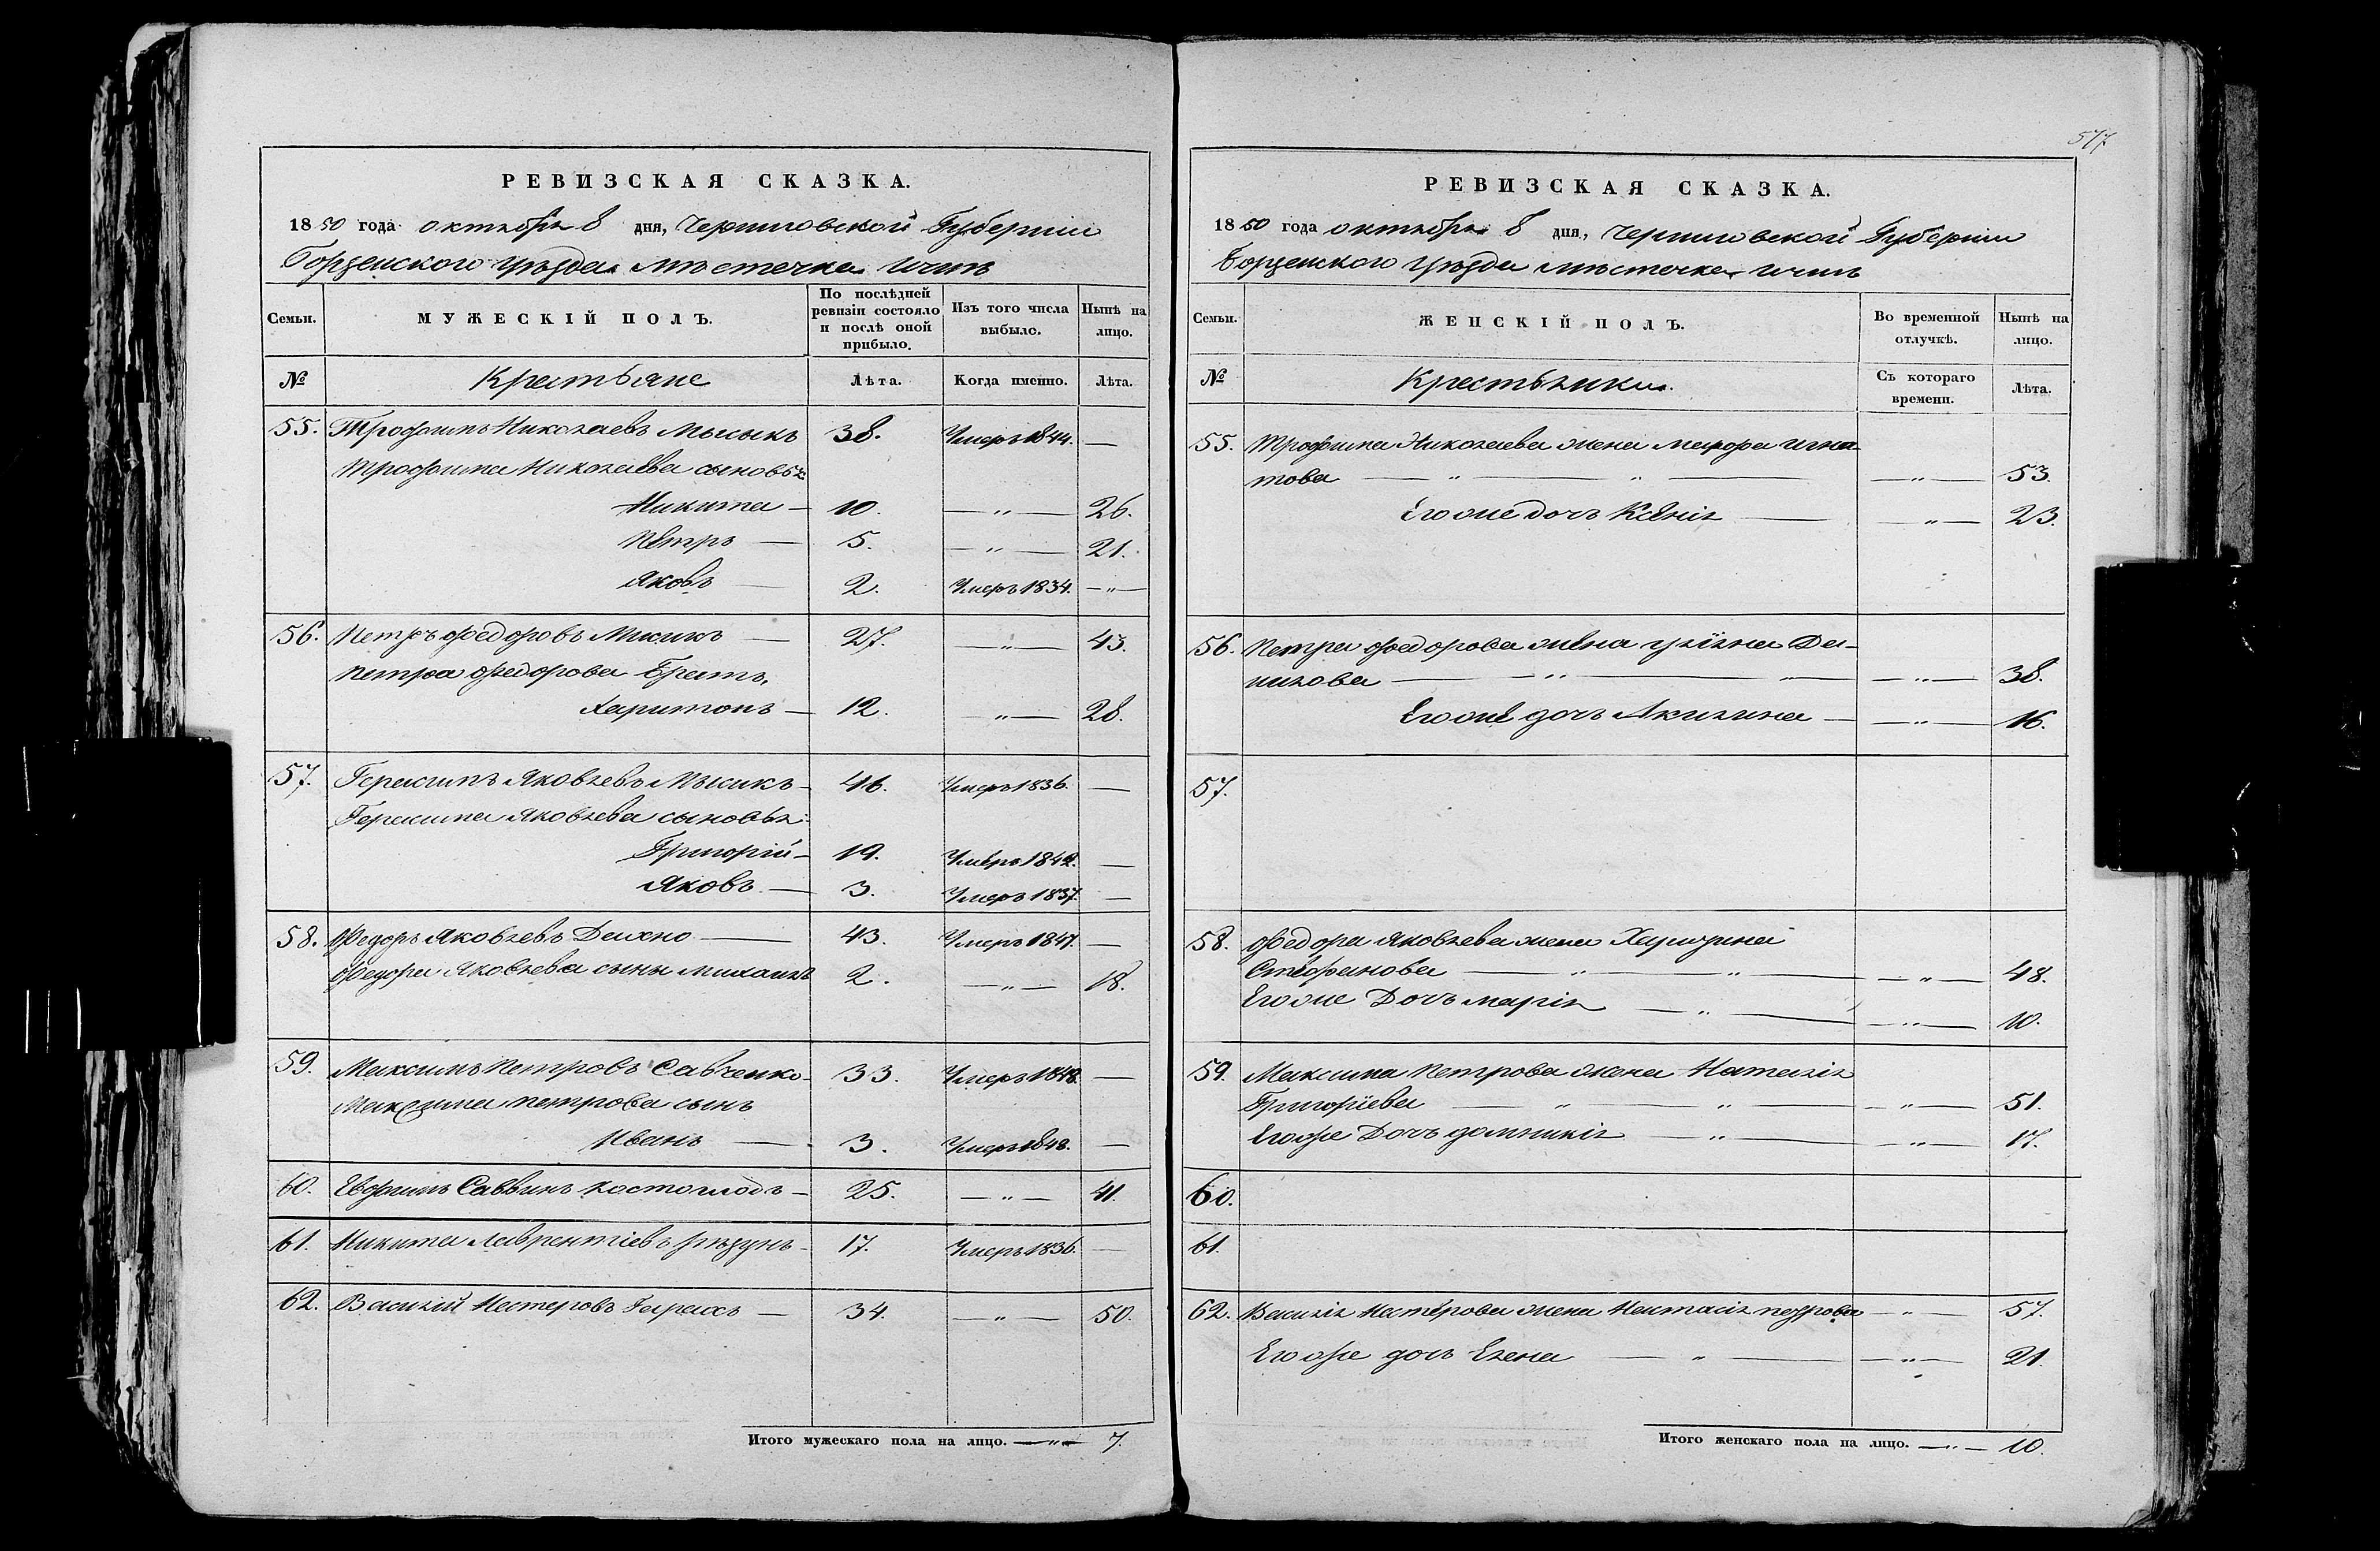 577
РЕВИЗСКАЯ СКАЗКА.
1850 года октября 8 дня, Черниговской Губернии
Борзенского уѣзда мѣстечка Ични
Семьи. МУЖЕСКІЙ ПОЛЪ. По послѣдней ревизіи состояло и послѣ оной прибыло. Изъ того числа выбыло. Нынѣ на лицо.
№ Крестьяне Лѣта. Когда именно. Лѣта.
55. Трофимъ Николаевъ Мысыкъ 38. Умеръ 1844. —
Трофима Николаева сыновья
Никита — 10. — " — 26.
Петръ — 5. — " — 21.
Яковъ — 2. Умеръ 1834. — " —
56. Петръ Федоровъ Мисикъ — 27. — " — 43.
Петра Федорова Братъ,
Харитонъ — 12. " — 28.
57. Герасимъ Яковлевъ Мысикъ — 46. Умеръ 1836. —
Герасима Яковлева сыновья:
Григорій — 19. Умеръ 1842. —
Яковъ — 3. Умеръ 1837. —
58. Федоръ Яковлевъ Дехно — 43. Умеръ 1847. —
Федора Яковлева сынъ Михаилъ 2. — " — 18.
59. Максимъ Петровъ Савченко — 33. Умеръ 1848. —
Максима Петрова сынъ
Иванъ — 3. Умеръ 1848. —
60. Евфимъ Саввинъ Костоглодъ — 25. — " — 41.
61. Никита Лаврентіевъ — 17. Умеръ 1836. —
62. Василій Нестеровъ — 34. — " — 50.
Итого мужескаго пола на лицо. — " — 7.
РЕВИЗСКАЯ СКАЗКА.
1850 года октября 8 дня, Черниговской Губернии
Борзенского уѣзда мѣстечка Ични
Семьи. ЖЕНСКІЙ ПОЛЪ. Во временной отлучкѣ. Нынѣ на лицо.
№ Крестьянки. Съ котораго времени. Лѣта.
55. Трофима Николаева жена Марфа Игна-
това — " — " — — " — 53.
Его же дочь Ксенія — — " — 23.
56. Петра Федорова жена Уліяна Да-
нилова — " — " — — " — 38.
Его же дочь Акилина — — " — 16.
57.
58. Федора Яковлева жена
Стефанова — " — " — — " — 48.
Его же Дочь Марія — " — — " — 10.
59. Максима Петрова жена Наталія
Григоріева — " — " — — " — 51.
Его же Дочь Домникія — " — — " — 17.
60.
61.
62. Василія Нестерова жена Настасія Петрова — " — 57.
Его же дочь Елена — " — — " — 21.
Итого женскаго пола на лицо. — " — 10.